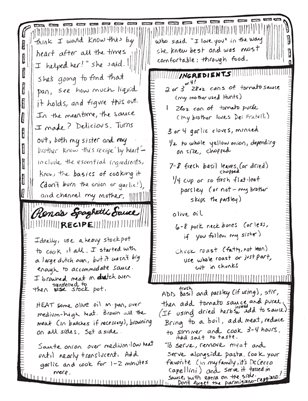 think I would know this by
heart after all the times
I helped her!" She said.
She's going to find that
pan, see how much liquid
it holds, and figure this out.
In the meantime, the sauce
I made? Delicious. Turns
out, both my sister and my
brother know this recipe by heart –
include the essential ingredients,
know the basics of cooking it
(don't burn the onion or garlic!),
and channel my mother,
who said "I love you" in the way
she knew best and was most
comfortable: through food.
INGREDIENTS
2 or 3 28oz cans of tomato sauce
(my mother used Hunts)
1 28oz can of tomato purée
(my brother loves Dei Fratelli)
3 or 4 garlic cloves, minced
½ to whole yellow onion, depending
on size, chopped
7-8 fresh basil leaves, (or dried)
chopped
¼ cup or so fresh flat-leaf
parsley (or not – my brother
skips the parsley)
olive oil
6-8 pork neck bones (or less,
if you follow my sister)
chuck roast (fatty, not lean)
use whole roast or just part,
cut in chunks
Rena's Spaghetti Sauce
RECIPE
Ideally, use a heavy stockpot
to cook it all. I started with
a large dutch oven, but it wasn't big
enough to accommodate sauce
I browned meat in dutch oven
then stock pot.
HEAT some olive oil in pan, over
medium-high heat. Brown the
meat (in batches if necessary), browning
on all sides. Set aside.
Sauté onion over medium low heat
until nearly translucent. Add
garlic and cook for 1-2 minutes
more.
ADD basil and parsley (if using), stir,
then add tomato sauce and pureé,
(If using dried herbs, add to sauce)
Bring to a boil, add meat, reduce
to simmer and cook 3-4 hours,
add salt to taste.
To serve, remove meat and
serve alongside pasta. Cook your
favorite (in my family, it's DeCecco
Capellini) and serve it tossed in
sauce, with extra on the side.
Don't forget the parmigiano-reggiano!